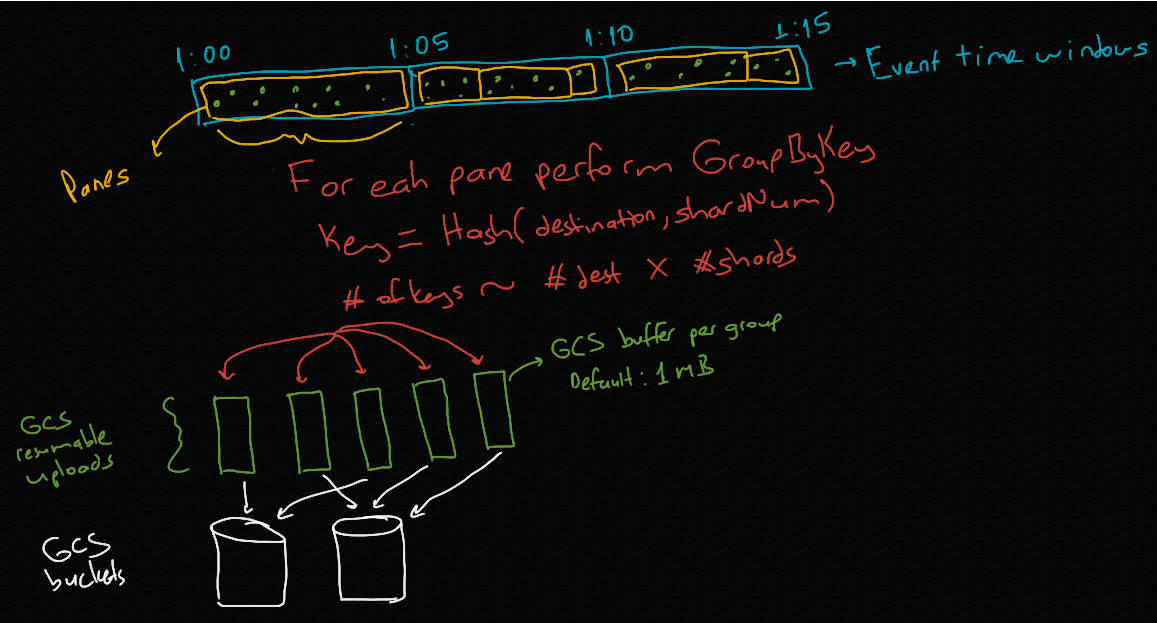 1:00
1:05
1:10
1:15
→ Event time windows
Panes
For eah pane perform GroupByKey
Key = Hash(destination, shardNum)
# of keys ~ # dest X #shards
GCS buffer per group
Default: 1 MB
GCS
resumable
uploads
GCS
buckets